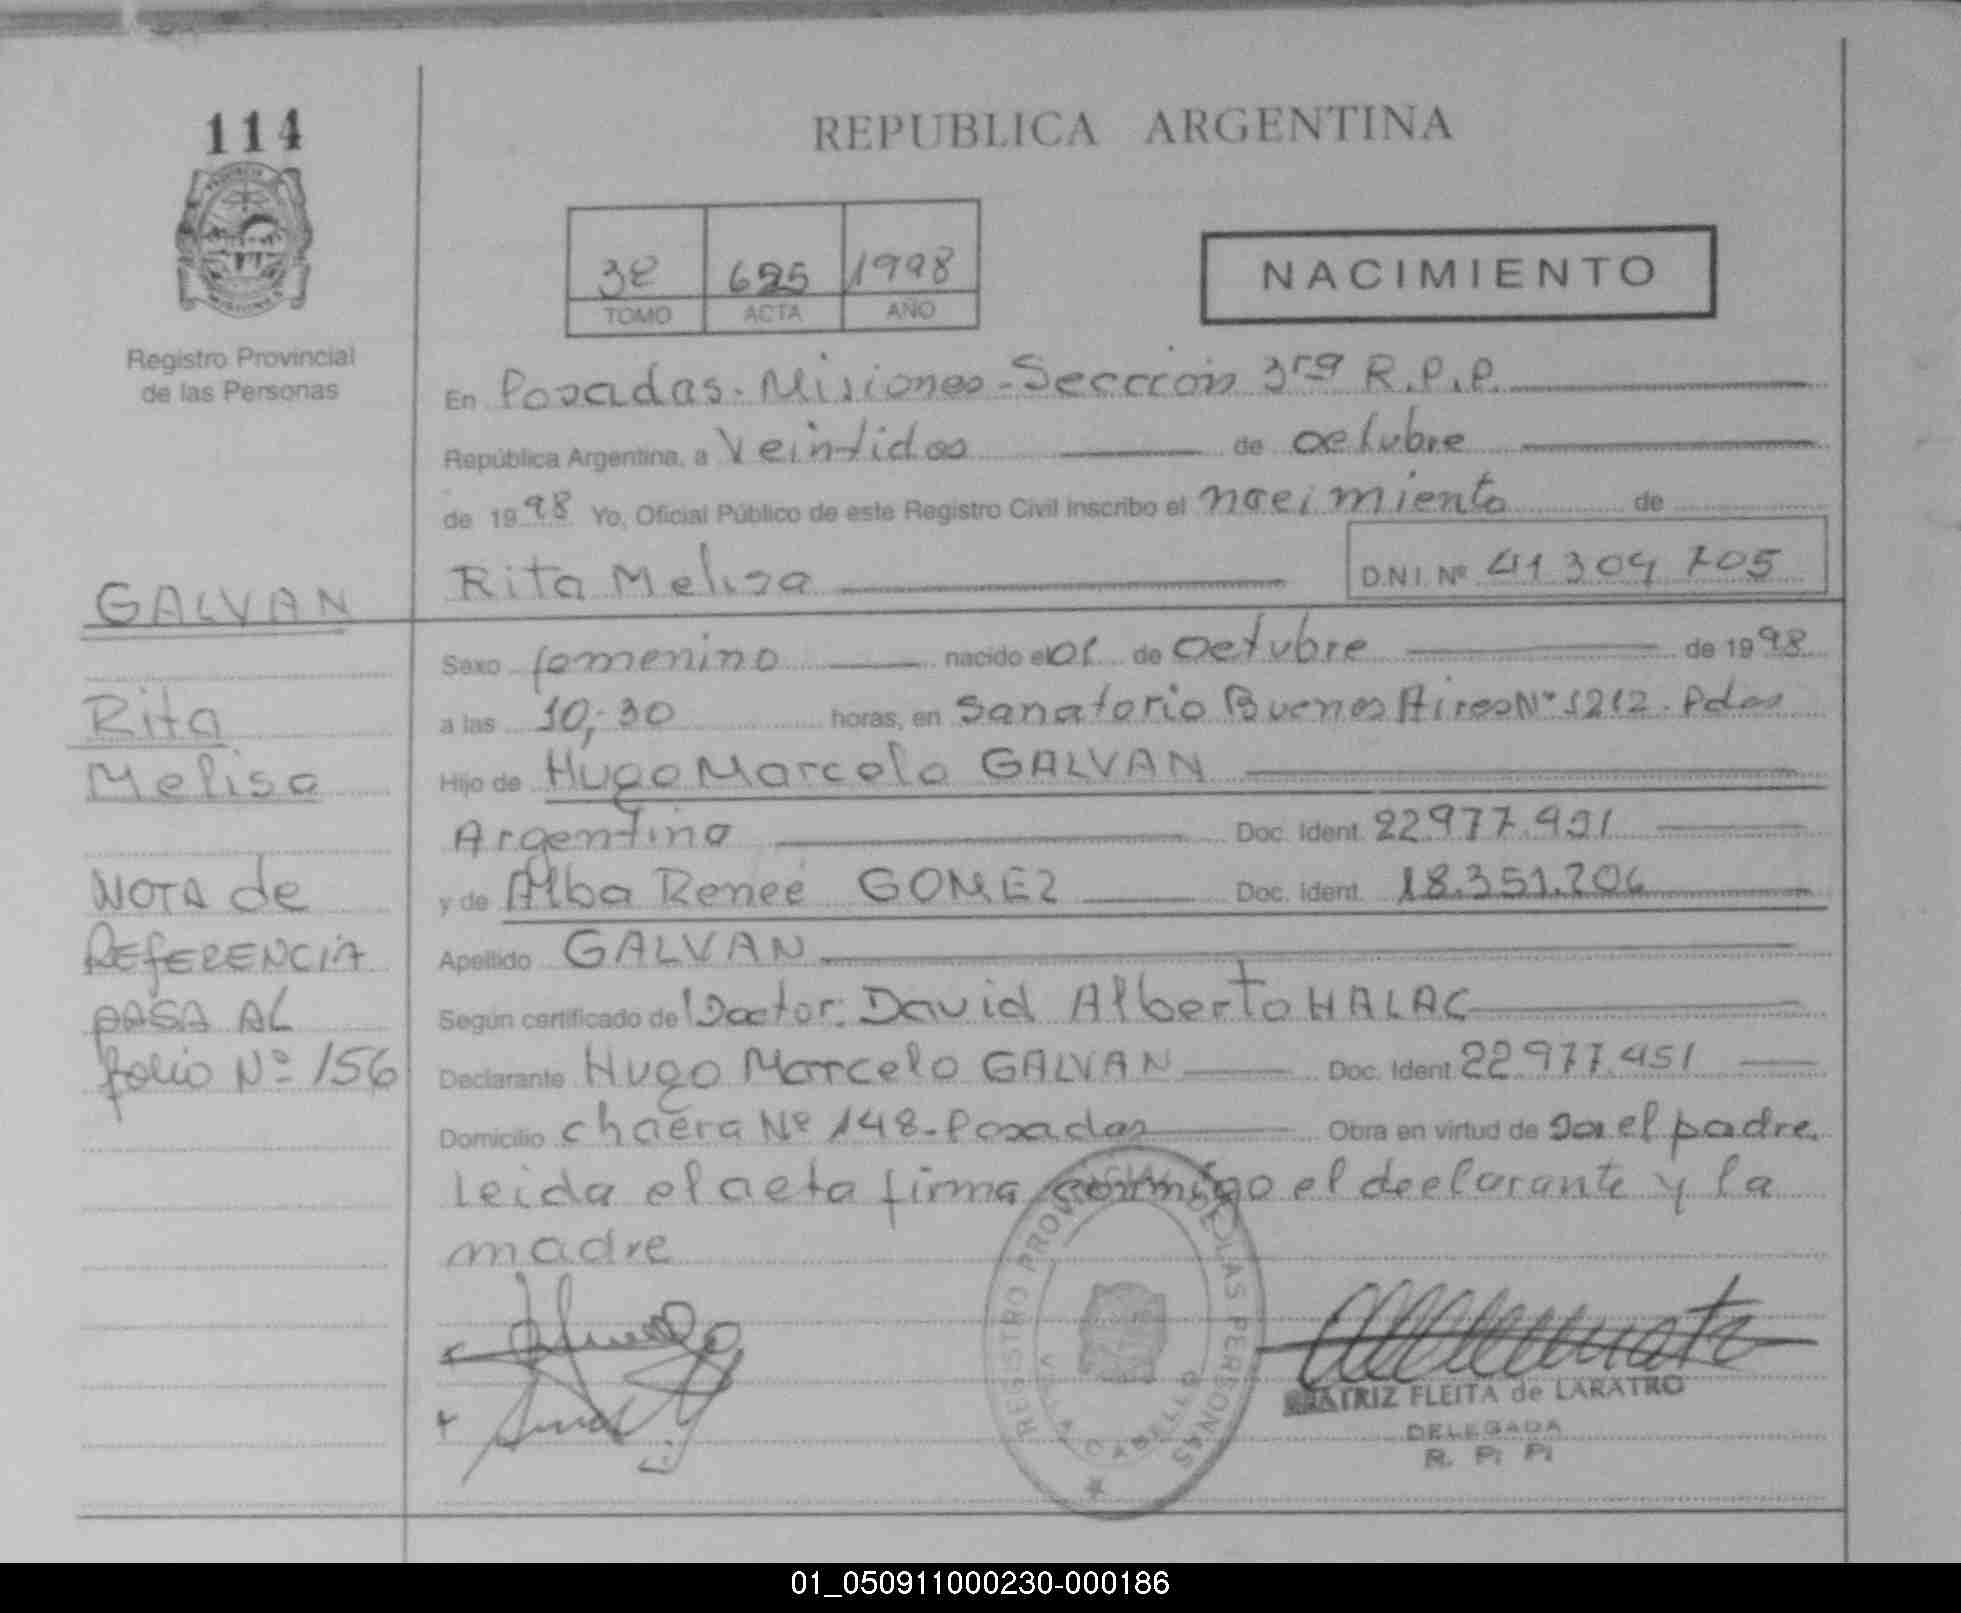 114
REPUBLICA ARGENTINA
3e 625 1998
TOMO ACTA AÑO
NACIMIENTO
Registro Provincial
de las Personas
En Posadas - Misiones - Seccción 3ra R.P.P.
República Argentina, a Veintidos de octubre
de 1998 Yo, Oficial Público de este Registro Civil inscribo el nacimiento de
Rita Melisa D.N.I. Nº 41 304 705
GALVAN
Sexo femenino nacido el 01 de octubre de 1998
Rita
a las 10,30 horas, en Sanatorio Buenos Aires Nº 1212. Pdas
Melisa
Hijo de Hugo Marcelo GALVAN
Argentino Doc. Ident. 22977.451
NOTA de
y de Alba Reneé GOMEZ Doc. Ident. 18.351.206
REFERENCIA
Apellido GALVAN
PASA AL
Según certificado de Doctor: David Alberto HALAC
folio Nº 156
Declarante Hugo Marcelo GALVAN Doc. Ident 22977.451
Domicilio chacra Nº 148 - Posadas Obra en virtud de ser el padre.
Leida el acta firma conmigo el declarante y la
madre
REGISTRO PROVINCIAL DE LAS PERSONAS
VILLA CABELLO
BEATRIZ FLEITA de LARATRO
DELEGADA
R. P. P.
01_050911000230-000186